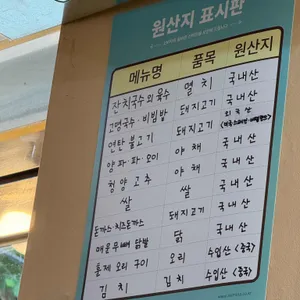 원산지 표시판
메뉴명 품목 원산지
잔치국수외 육수 멸치 국내산
고명국수·비빔밥 돼지고기 외국산
연탄 불고기 돼지고기 국내산
양파·파·오이 야채 국내산
청양고추 야채 국내산
쌀 쌀 국내산
돈까스·치즈돈까스 돼지고기 국내산
매운무뼈닭발 닭 국내산
통제 오리 구이 오리 수입산 (중국)
김치 김치 수입산 (중국)